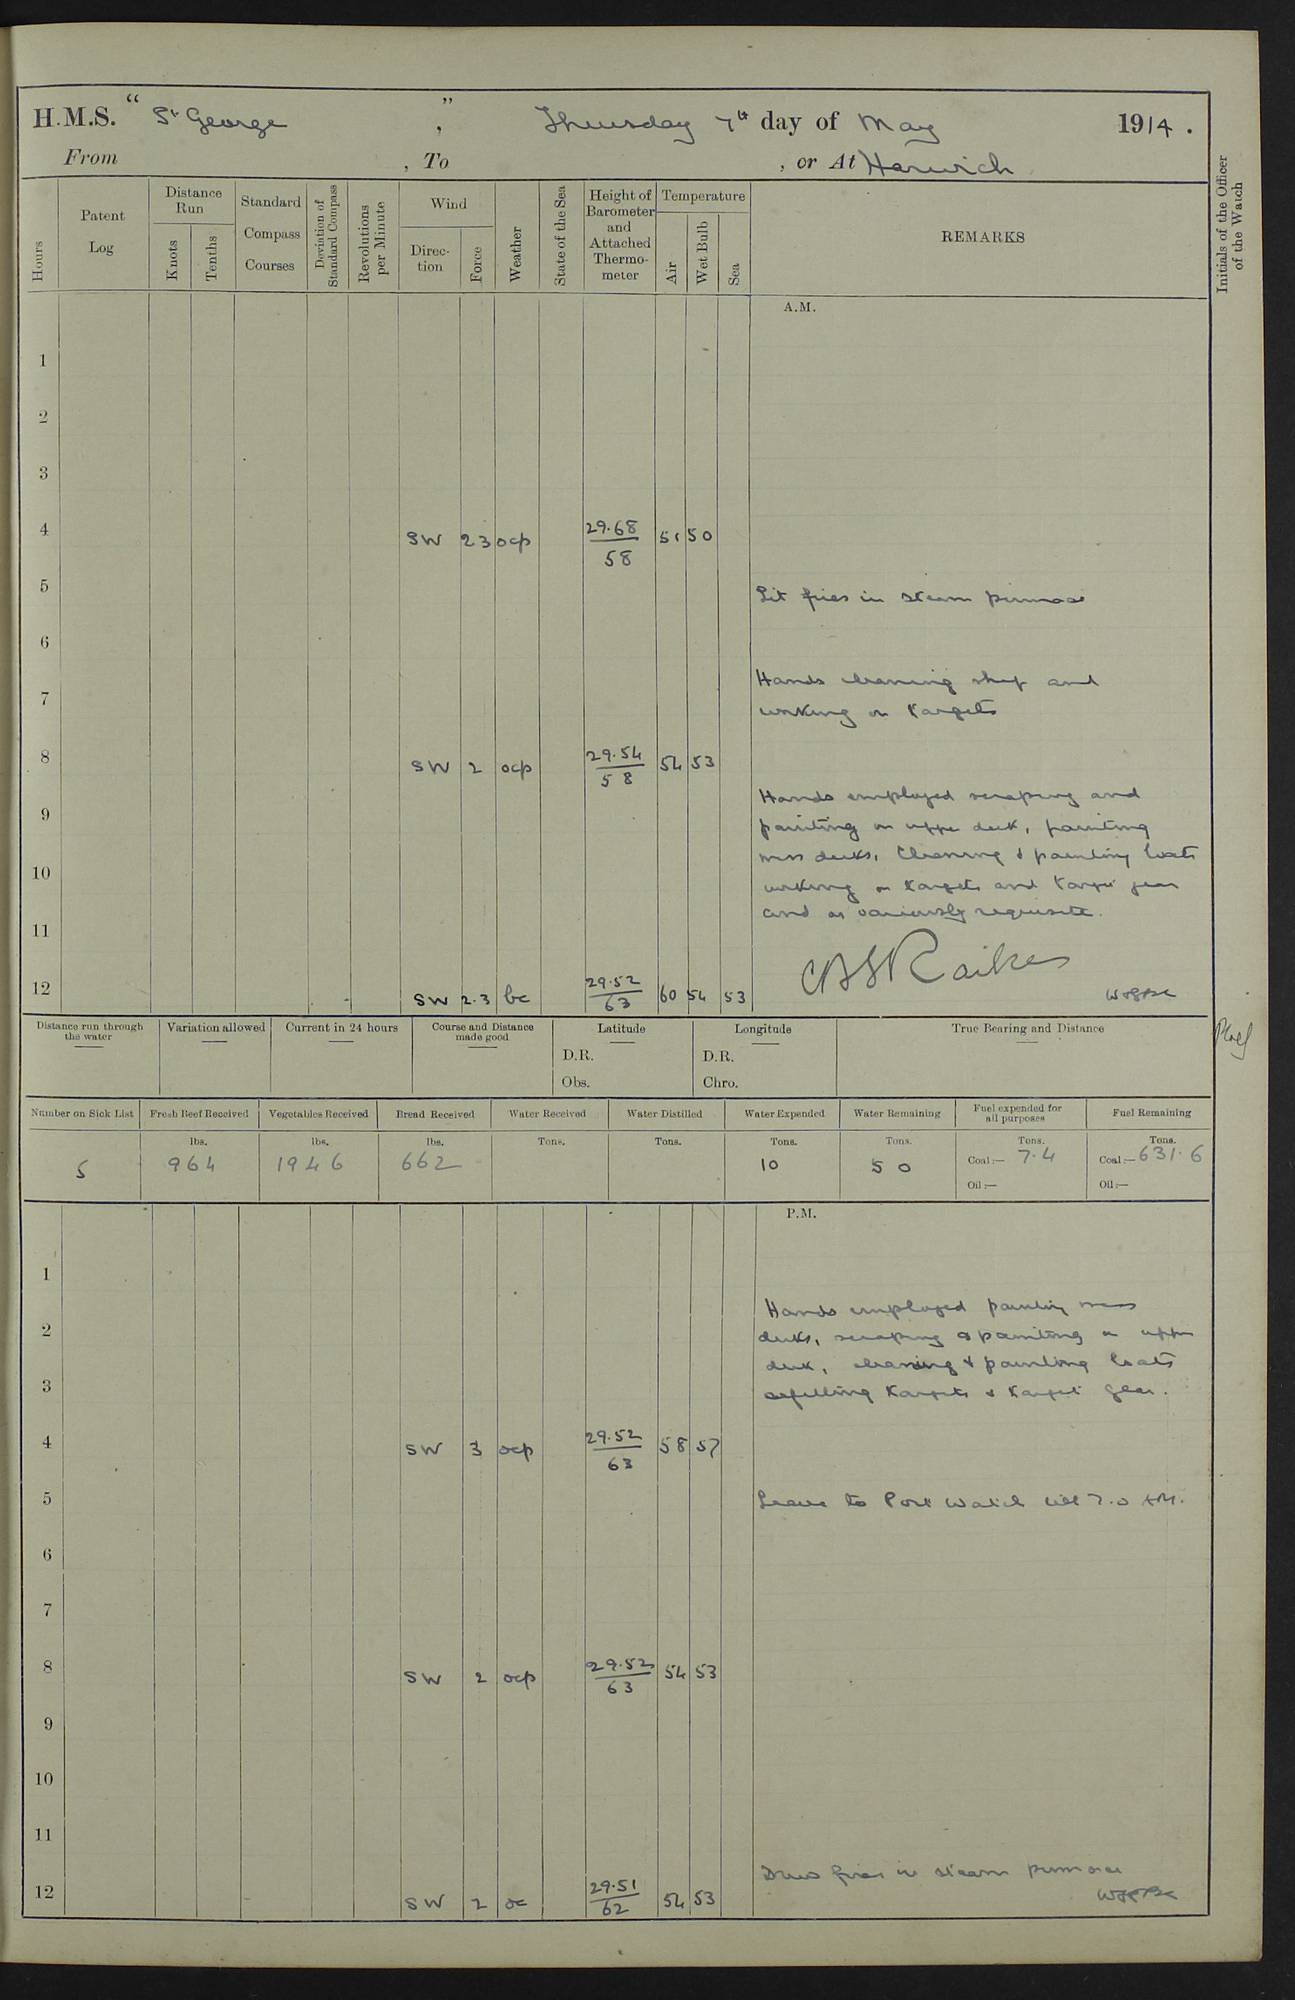 H.M.S. “ St George ” , Thursday 7th day of May 1914 .
From , To , or At Harwich
Hours
Patent Log
Distance Run
Knots
Tenths
Standard Compass Courses
Deviation of Standard Compass
Revolutions per Minute
Wind
Direc-tion
Force
Weather
State of the Sea
Height of Barometer and Attached Thermo-meter
Temperature
Air
Wet Bulb
Sea
REMARKS
Initials of the Officer of the Watch
A.M.
1
2
3
4 SW 2 3 ocp 29.68 58 51 50
5 Lit fires in steam pinnace
6
Hands cleaning ship and
7 working on targets
8 SW 2 ocp 29.54 58 54 53
Hands employed scraping and
9 painting on upper deck, painting
mess decks, Cleaning & painting boats
10 working on targets and target gear
11 and as variously requisite.
Raikes
12 SW 2.3 bc 29.52 63 60 54 53
Distance run through the water
Variation allowed
Current in 24 hours
Course and Distance made good
Latitude
D.R.
Obs.
Longitude
D.R.
Chro.
True Bearing and Distance
Number on Sick List
Fresh Beef Received
Vegetables Received
Bread Received
Water Received
Water Distilled
Water Expended
Water Remaining
Fuel expended for all purposes
Fuel Remaining
5
lbs. 964
lbs. 1946
lbs. 662
Tons.
Tons.
Tons. 10
Tons. 50
Tons. Coal:— 7.4
Oil:—
Tons. Coal:— 631.6
Oil:—
P.M.
1
Hands employed painting mess
2 decks, scraping & painting on upper
deck, cleaning & painting boats
3 refitting targets & target gear.
4 SW 3 ocp 29.52 63 58 57
5 Leave to Port Watch till 7.0 AM.
6
7
8 SW 2 ocp 29.52 63 54 53
9
10
11
Drew fires in steam pinnace
12 SW 2 oc 29.51 62 54 53